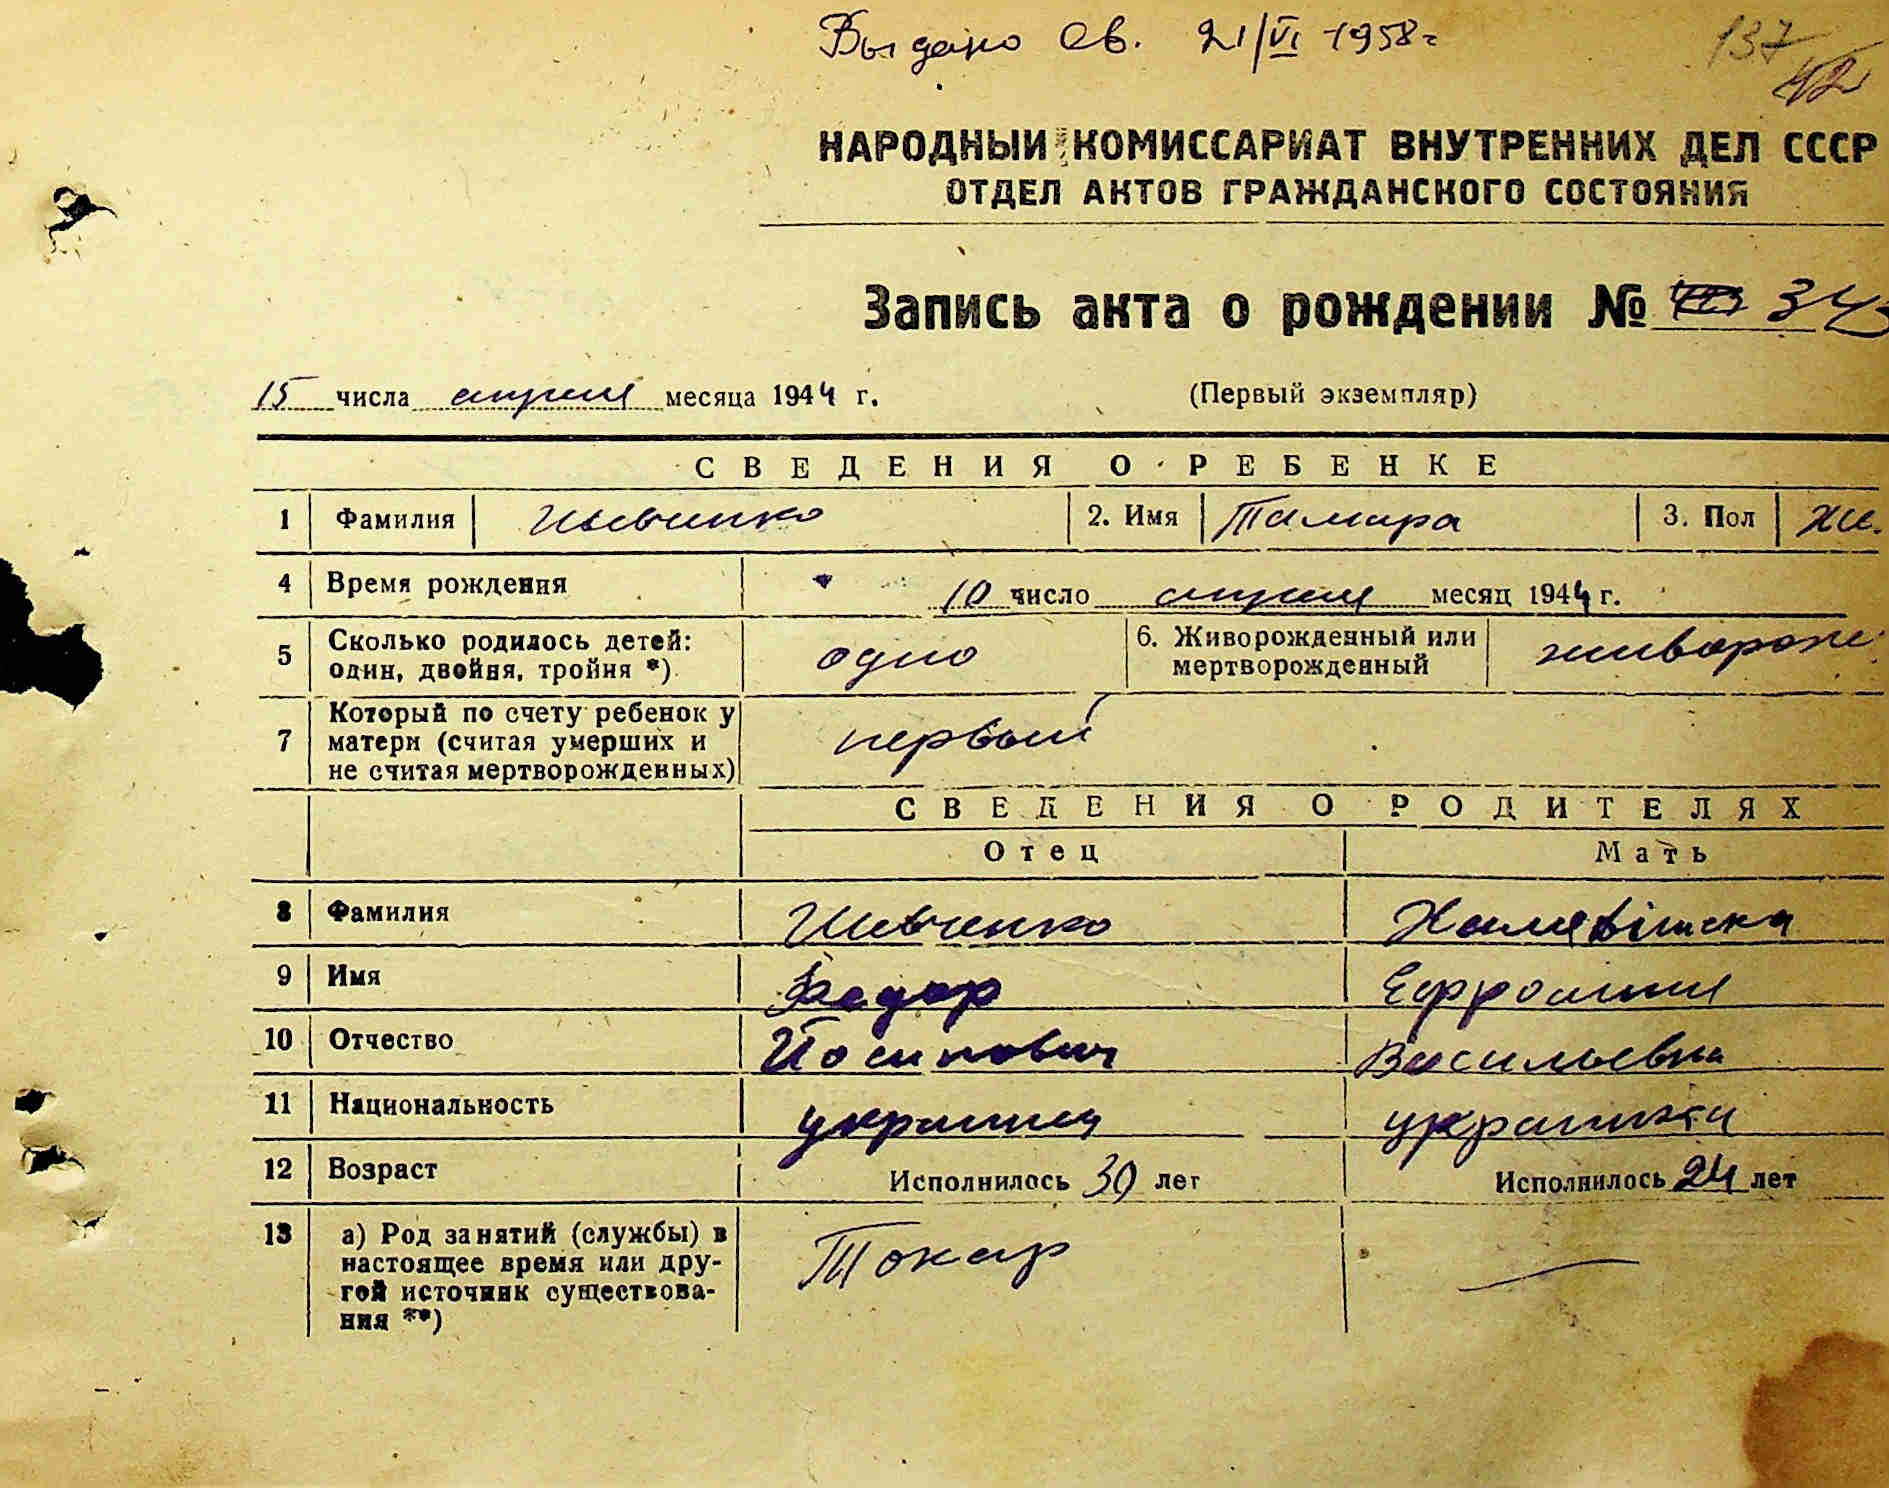 Выдано св. 21/VI 1958 г
137
42
НАРОДНЫЙ КОМИССАРИАТ ВНУТРЕННИХ ДЕЛ СССР
ОТДЕЛ АКТОВ ГРАЖДАНСКОГО СОСТОЯНИЯ
Запись акта о рождении № 343
15 числа апреля месяца 1944 г. (Первый экземпляр)
СВЕДЕНИЯ О РЕБЕНКЕ
1 Фамилия Шевченко 2. Имя Тамара 3. Пол жи.
4 Время рождения 10 число апреля месяц 1944 г.
5 Сколько родилось детей: один, двойня, тройня *) одно 6. Живорожденный или мертворожденный живорож
7 Который по счету ребенок у матери (считая умерших и не считая мертворожденных) первый
СВЕДЕНИЯ О РОДИТЕЛЯХ
Отец Мать
8 Фамилия Шевченко
9 Имя Федор Ефросиния
10 Отчество Йосипович Васильевна
11 Национальность украинец украинка
12 Возраст Исполнилось 30 лет Исполнилось 24 лет
13 а) Род занятий (службы) в настоящее время или другой источник существования **) Токар —